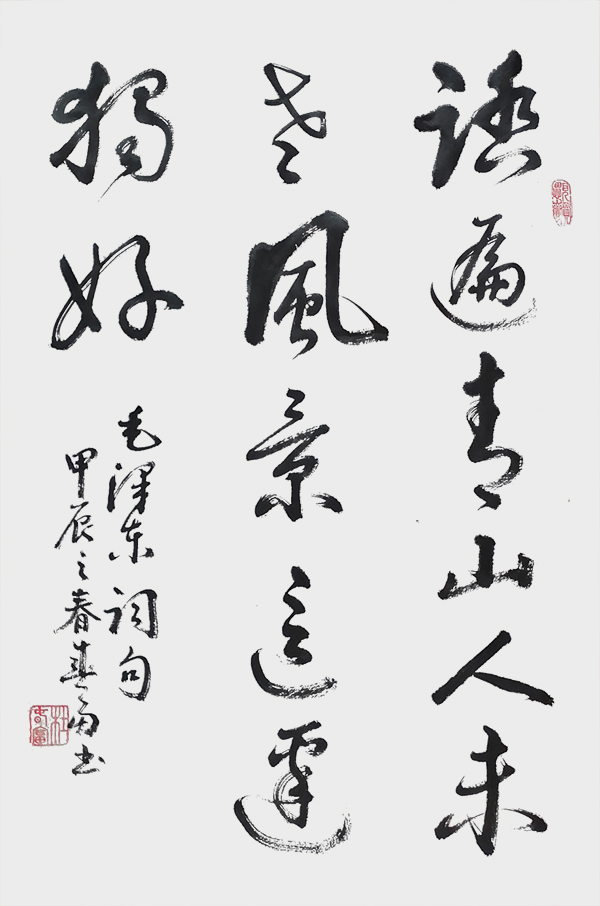 踏遍青山人未
老風景這邊
獨好
毛澤东詞句
甲辰之春富书